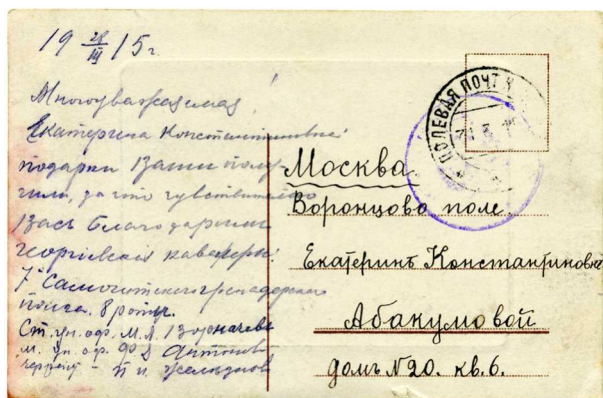 19 28/III 15 г.
Многоуважаемая!
Екатерина Константиновна!
подарки Ваши полу-
чили, за что чувствительно
Васъ благодаримъ
георгіевскіе кавалеры:
7 Самогитскаго гренадерскаго
полка. 8 роты.
Ст. ун. оф. М. Л.
м. ун. оф. Ф Антонов
П и
ПОЛЕВАЯ ПОЧТ
Москва.
Воронцово поле.
Екатеринѣ Константиновнѣ
Абакумовой
домъ №20. кв. 6.